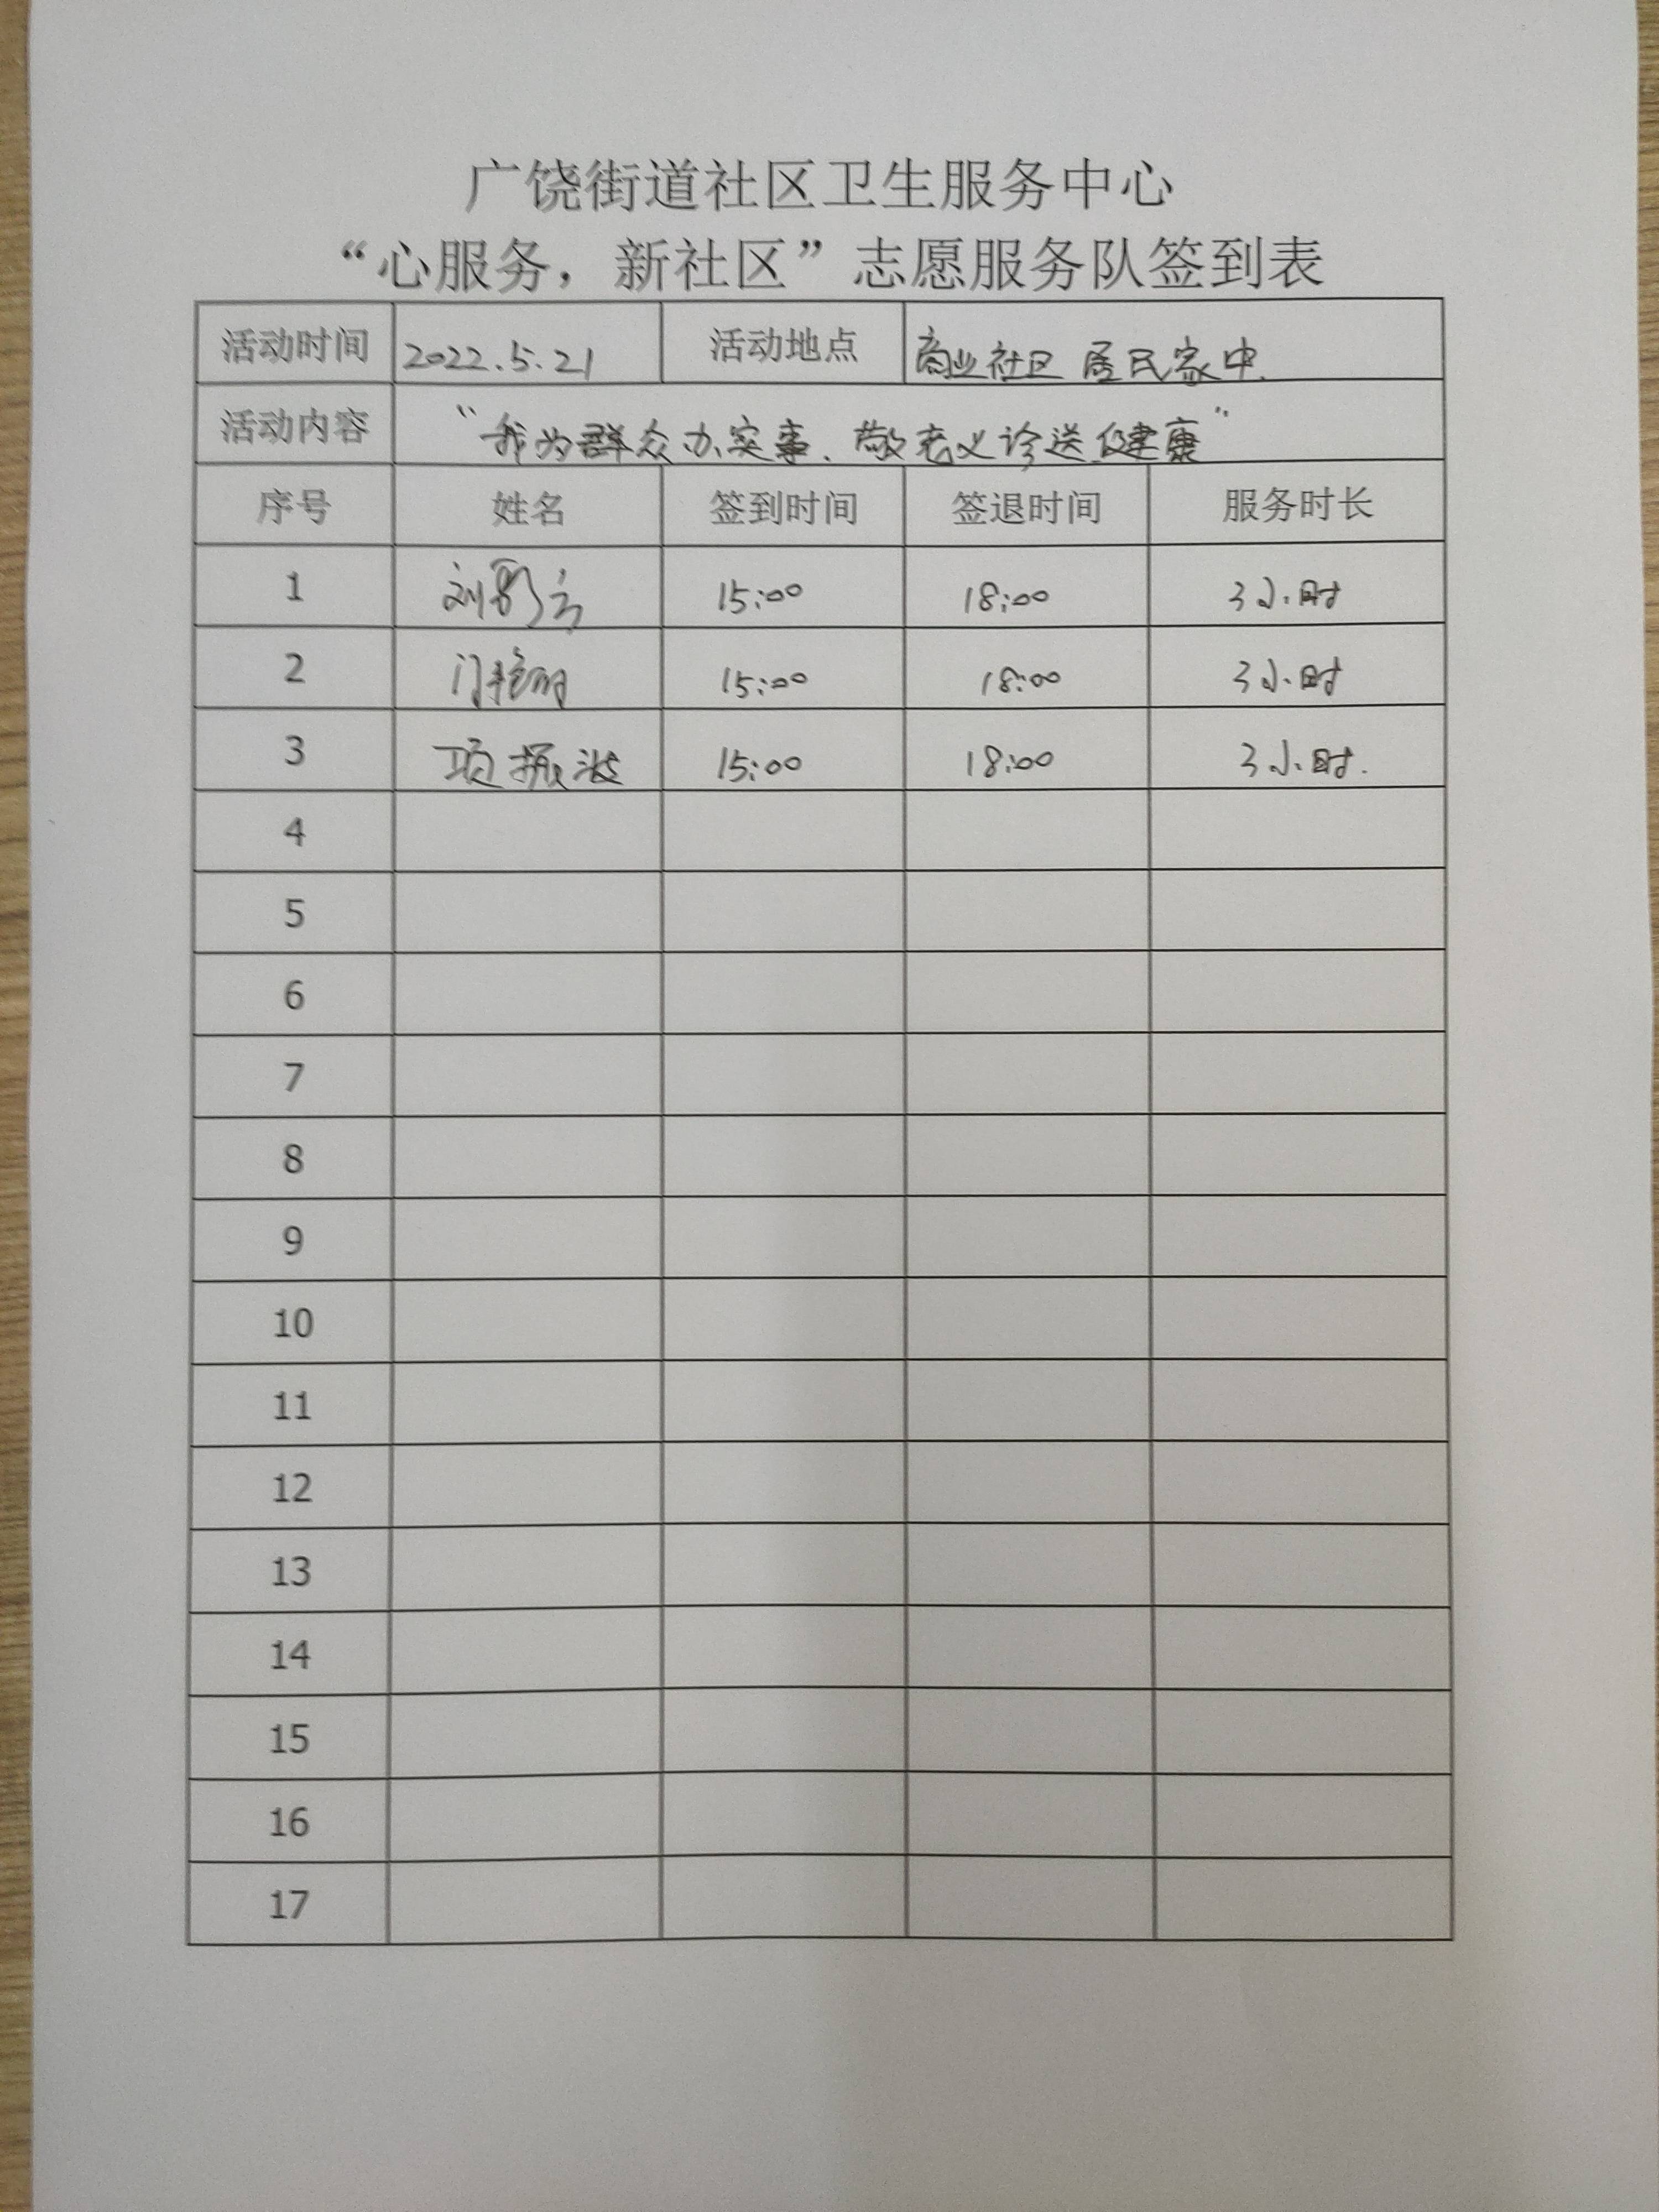 广饶街道社区卫生服务中心
“心服务，新社区”志愿服务队签到表
活动时间 2022.5.21 活动地点 商业社区 居民家中.
活动内容 “我为群众办实事、敬老义诊送健康”
序号 姓名 签到时间 签退时间 服务时长
1 刘 15:00 18:00 3小时
2 15:00 18:00 3小时
3 项振波 15:00 18:00 3小时.
4
5
6
7
8
9
10
11
12
13
14
15
16
17